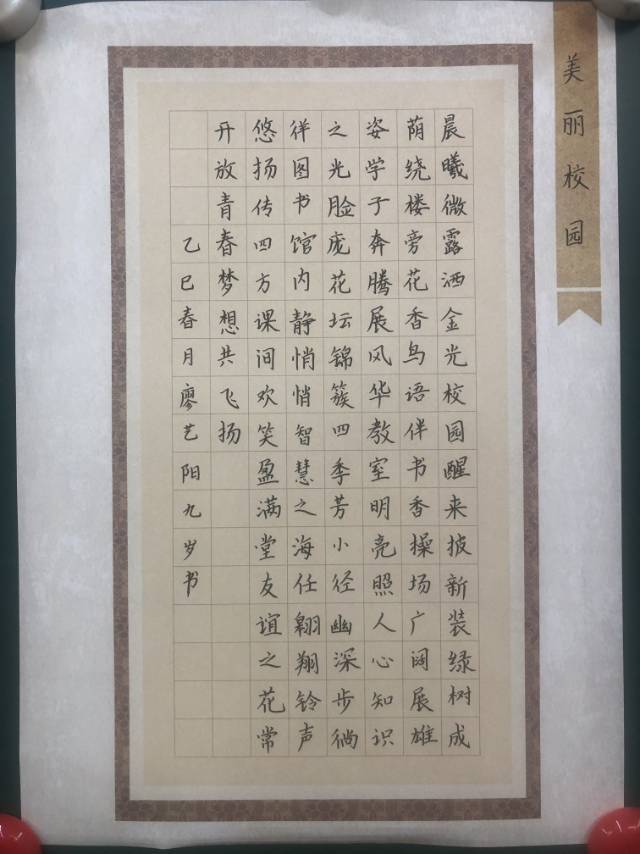 美丽校园
晨曦微露洒金光校园醒来披新装绿树成
荫绕楼旁花香鸟语伴书香操场广阔展雄
姿学子奔腾展风华教室明亮照人心知识
之光脸庞花坛锦簇四季芳小径幽深步徜
徉图书馆内静悄悄智慧之海任翱翔铃声
悠扬传四方课间欢笑盈满堂友谊之花常
开放青春梦想共飞扬
乙巳春月廖艺阳九岁书